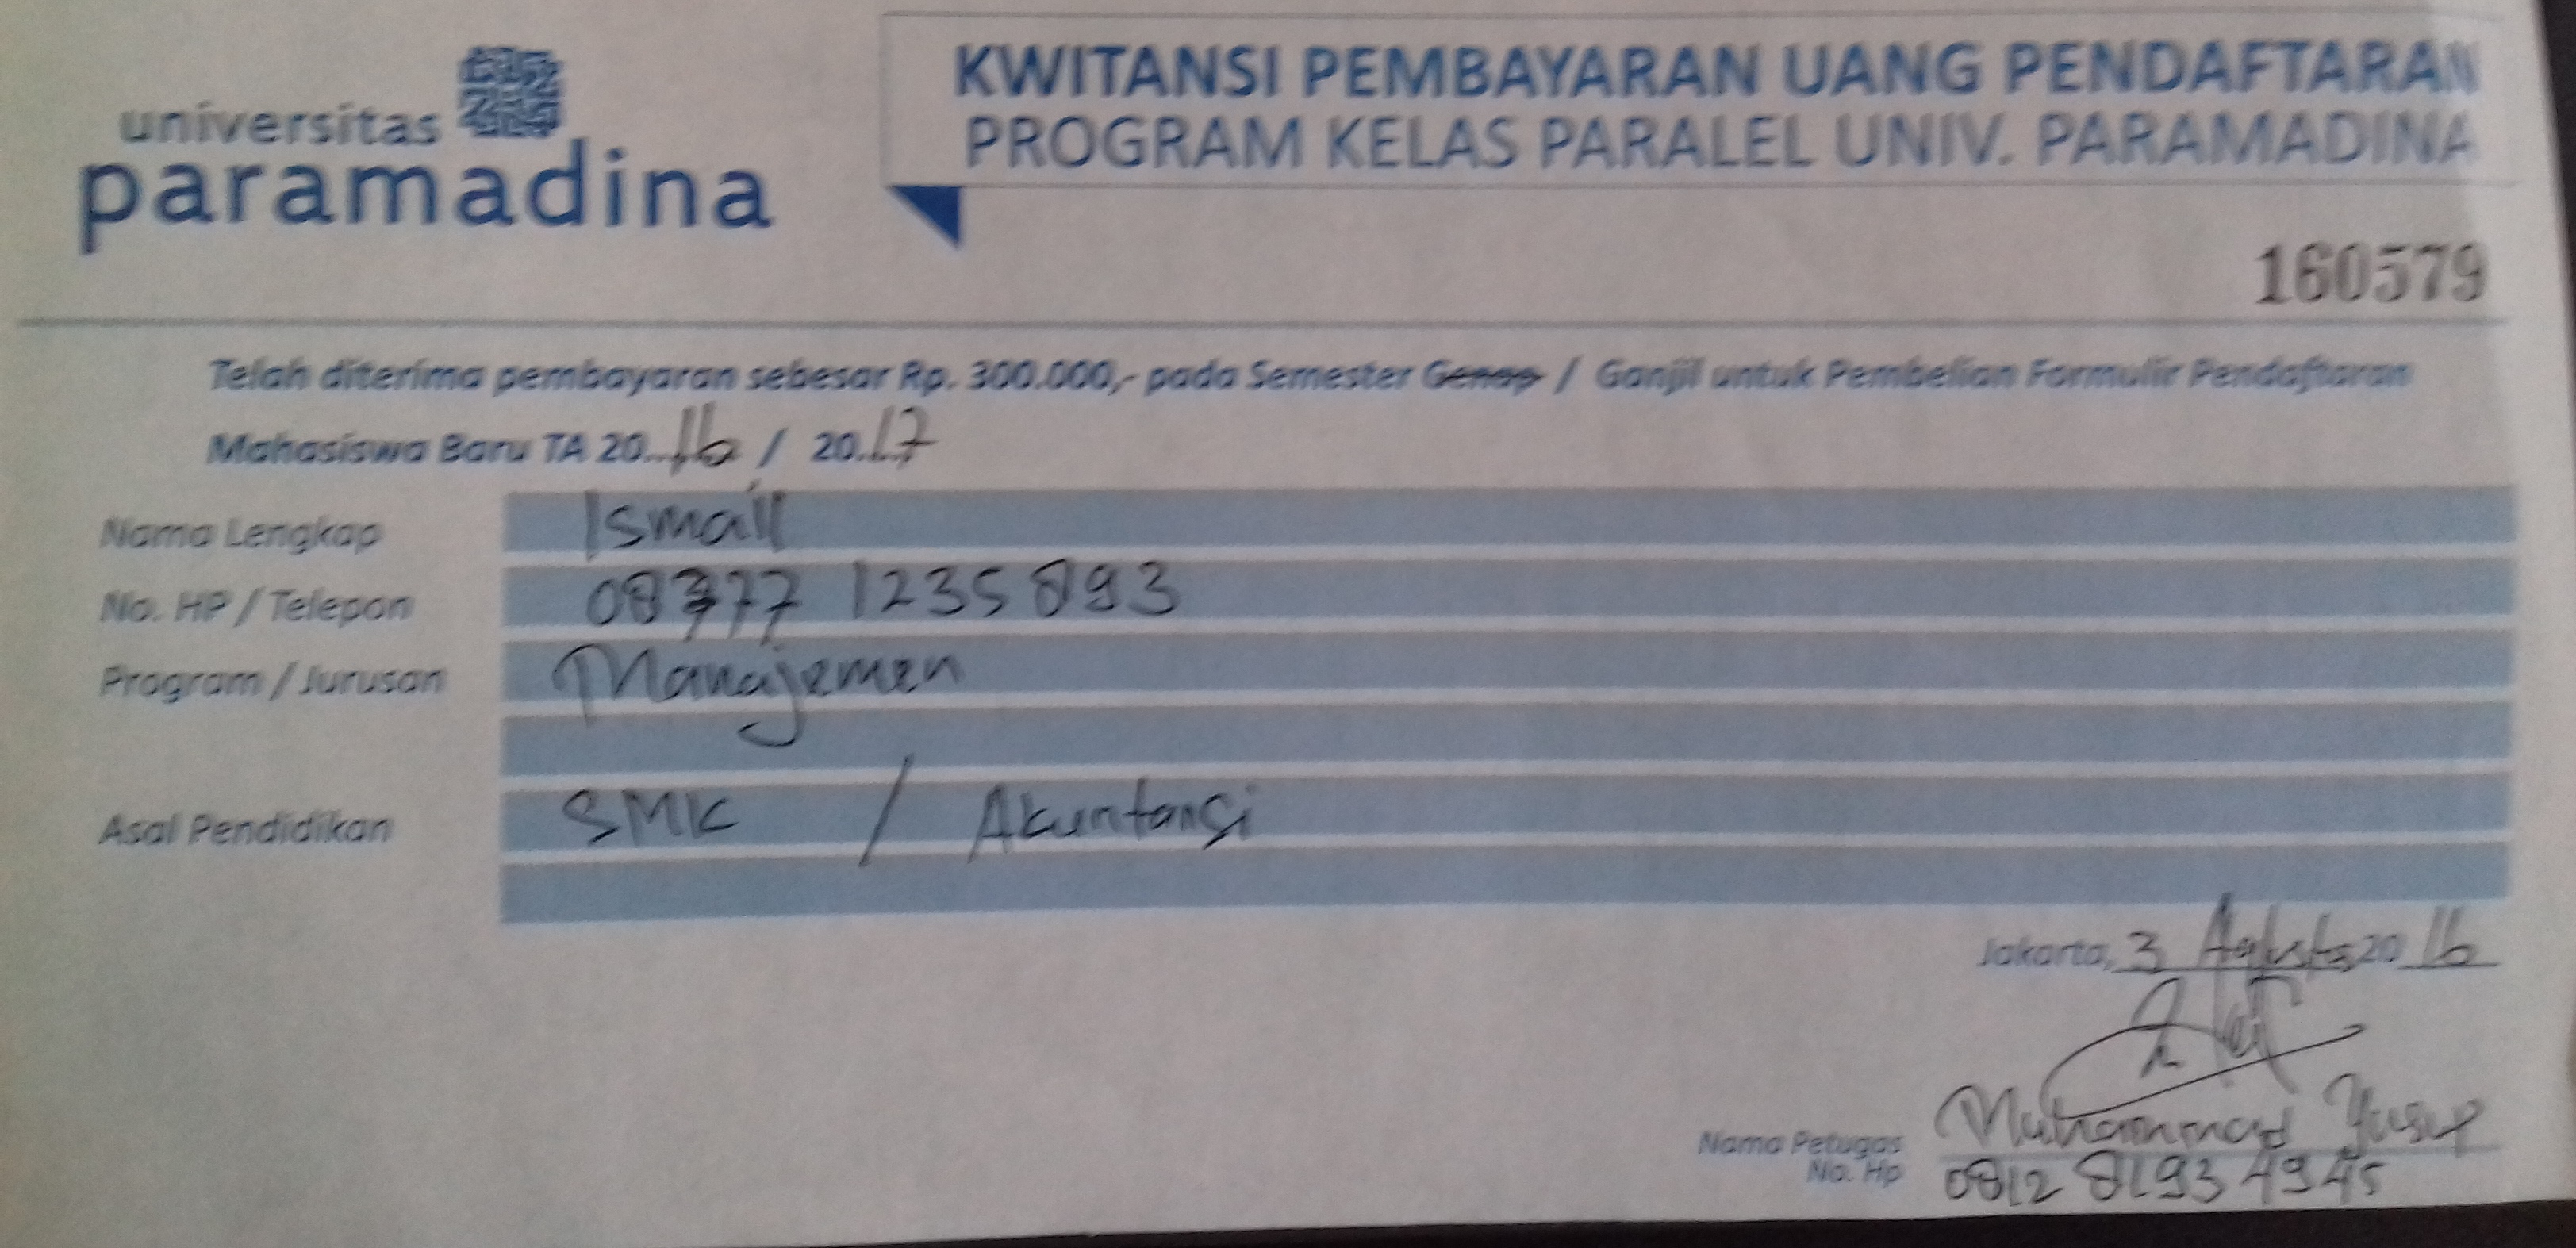 universitas
paramadina
KWITANSI PEMBAYARAN UANG PENDAFTARAN
PROGRAM KELAS PARALEL UNIV. PARAMADINA
160579
Telah diterima pembayaran sebesar Rp. 300.000,- pada Semester Genap / Ganjil untuk Pembelian Formulir Pendaftaran
Mahasiswa Baru TA 20..16 / 20.17
Nama Lengkap Ismail
No. HP / Telepon 08377 1235 893
Program / Jurusan Manajemen
Asal Pendidikan SMK / Akuntansi
Jakarta, 3 Agustus 20 16
Nama Petugas Muhammad Yusup
No. Hp 0812 8193 4945